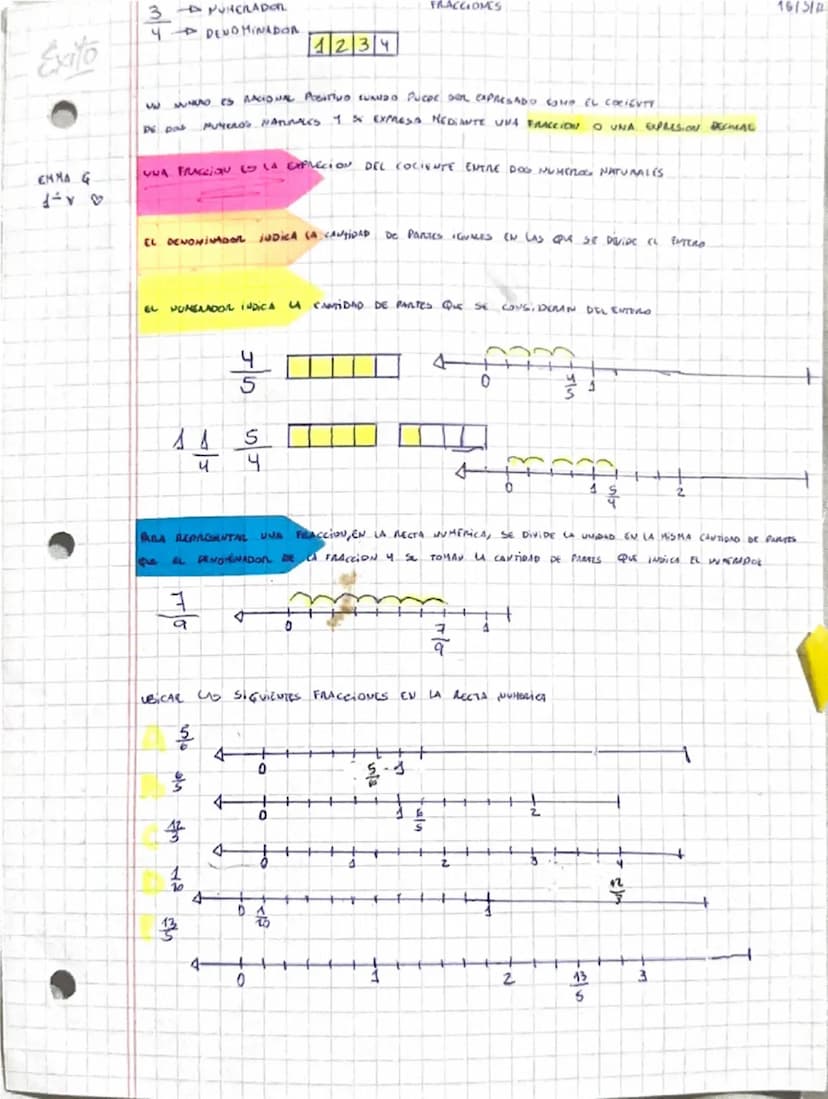 3 → NUMERADOR
4 → DENOMINADOR
FRACCIONES
1 2 3 4
Éxito
UN NUMERO ES RACIONAL POSITIVO CUANDO PUEDE SER EXPRESADO COMO EL COCIENTE
DE DOS NUMEROS NATURALES Y SE EXPRESA MEDIANTE UNA FRACCION O UNA EXPRESION DECIMAL
EMMA G
1÷r ♡
UNA FRACCION ES LA EXPRECION DEL COCIENTE ENTRE DOS NUMEROS NATURALES
EL DENOMINADOR INDICA LA CANTIDAD DE PARTES IGUALES EN LAS QUE SE DIVIDE EL ENTERO
EL NUMERADOR INDICA LA CANTIDAD DE PARTES QUE SE CONSIDERAN DEL ENTERO
4/5
0 4/5 1
1 1/4 5/4
0 1 5/4 2
PARA REPRESENTAR UNA FRACCION, EN LA RECTA NUMÉRICA, SE DIVIDE LA UNIDAD EN LA MISMA CANTIDAD DE PARTES
QUE EL DENOMINADOR DE LA FRACCION Y SE TOMAN LA CANTIDAD DE PARTES QUE INDICA EL NUMERADOR
7/9
0 7/9 1
UBICAR LAS SIGUIENTES FRACCIONES EN LA RECTA NUMERICA
A 5/6
0 5/6 1
B 6/5
0 1 6/5 2
C 12/3
0 1 2 3 4
12/3
D 1/10
0 1/10 1
E 13/5
0 1 2 13/5 3